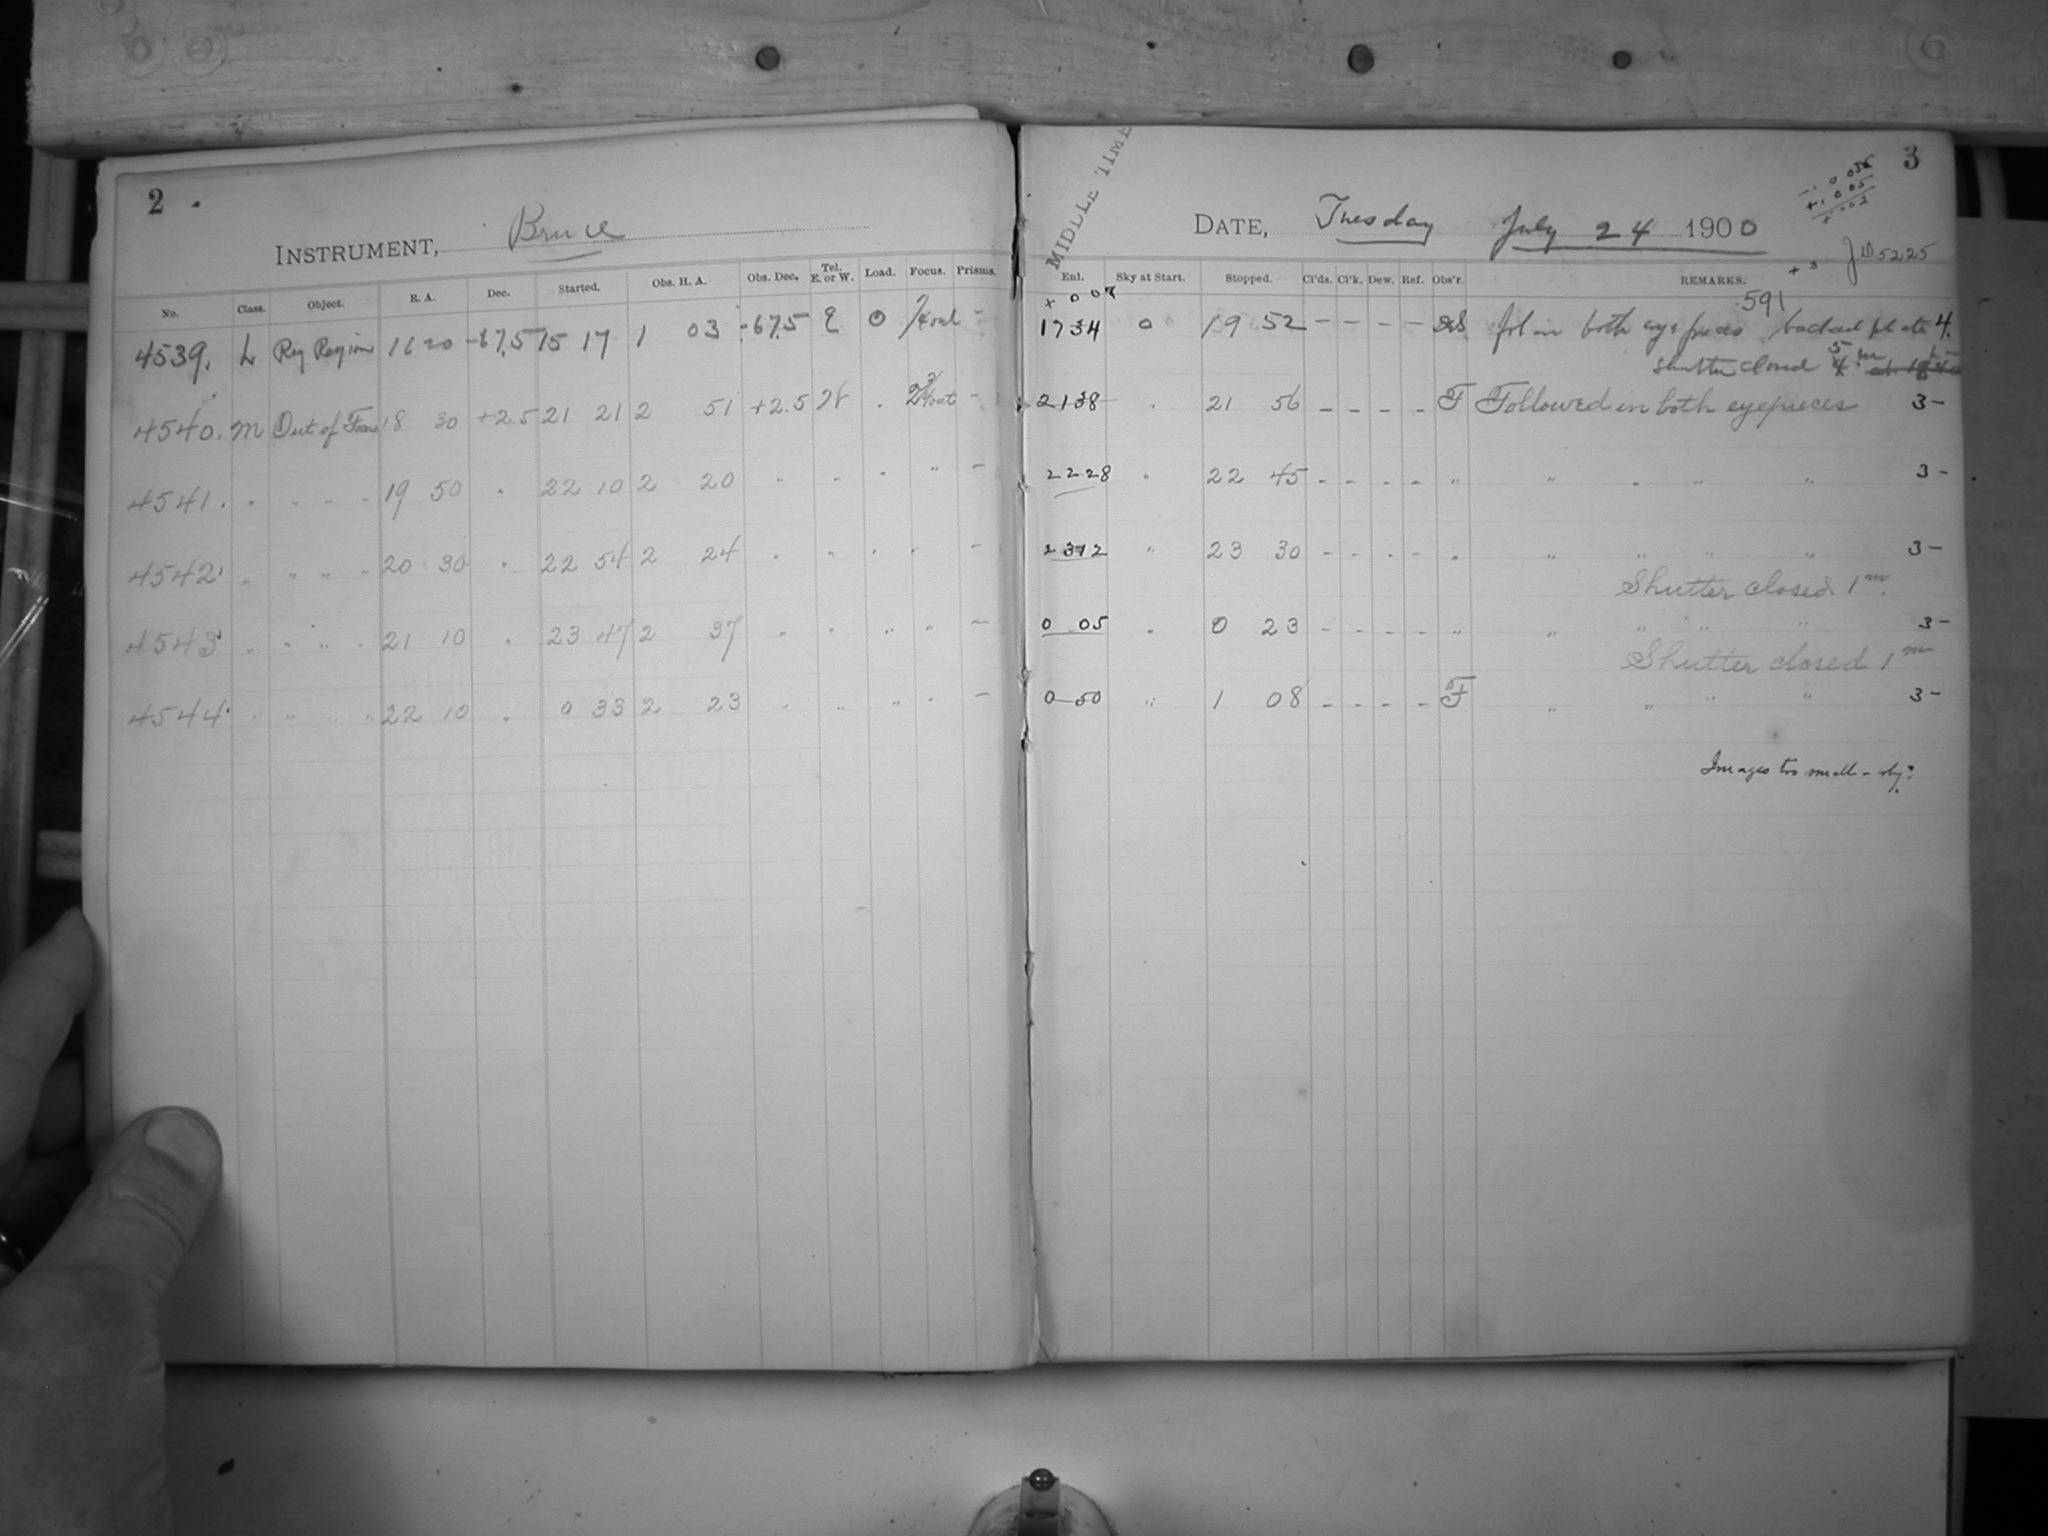 2
INSTRUMENT, Bruce
No. Class. Object. R. A. Dec. Started. Obs. H. A. Obs. Dec. Tel. E. or W. Load. Focus. Prisms.
4539. L Reg Region 16 20 -67.5 15 17 1 03 -67.5 E 0 -
4540. M Out of Focus 18 30 +2.5 21 21 2 51 +2.5 W . -
4541. " " " " 19 50 " 22 10 2 20 " " " " -
4542. " " " " 20 30 " 22 54 2 24 " " " " -
4543. " " " " 21 10 " 23 47 2 37 " " " " -
4544. " " " " 22 10 " 0 33 2 23 " " " " -
3
MIDDLE TIME
DATE, Tuesday July 24 1900
JD 5225
+3
Enl. Sky at Start. Stopped. Cl'ds. Cl'k. Dew. Ref. Obs'r. REMARKS.
591
1734 0 19 52 - - - - Fol in both eye pieces backed plate 4.
Shutter closed 5 m
2138 " 21 56 - - - - F Followed in both eyepieces 3-
2228 " 22 45 - - - - " " " " " 3-
2312 " 23 30 - - - - " " " " " 3-
Shutter closed 1m.
0 05 " 0 23 - - - - " " " " " 3-
Shutter closed 1m
0 50 " 1 08 - - - - F " " " " 3-
Images too small -